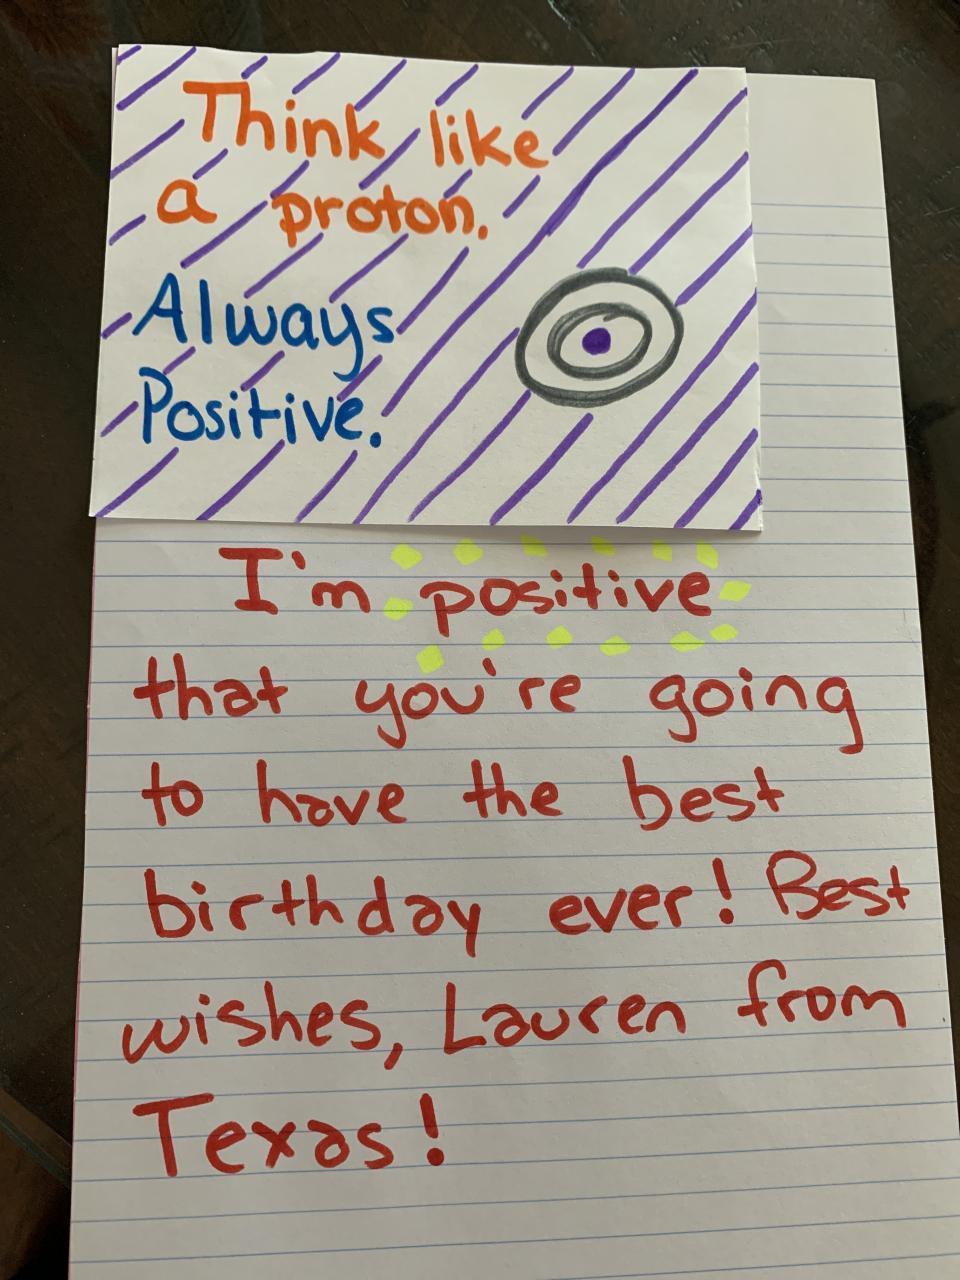 Think like
a proton.
Always
Positive.
I'm positive
that you're going
to have the best
birthday ever! Best
wishes, Lauren from
Texas!